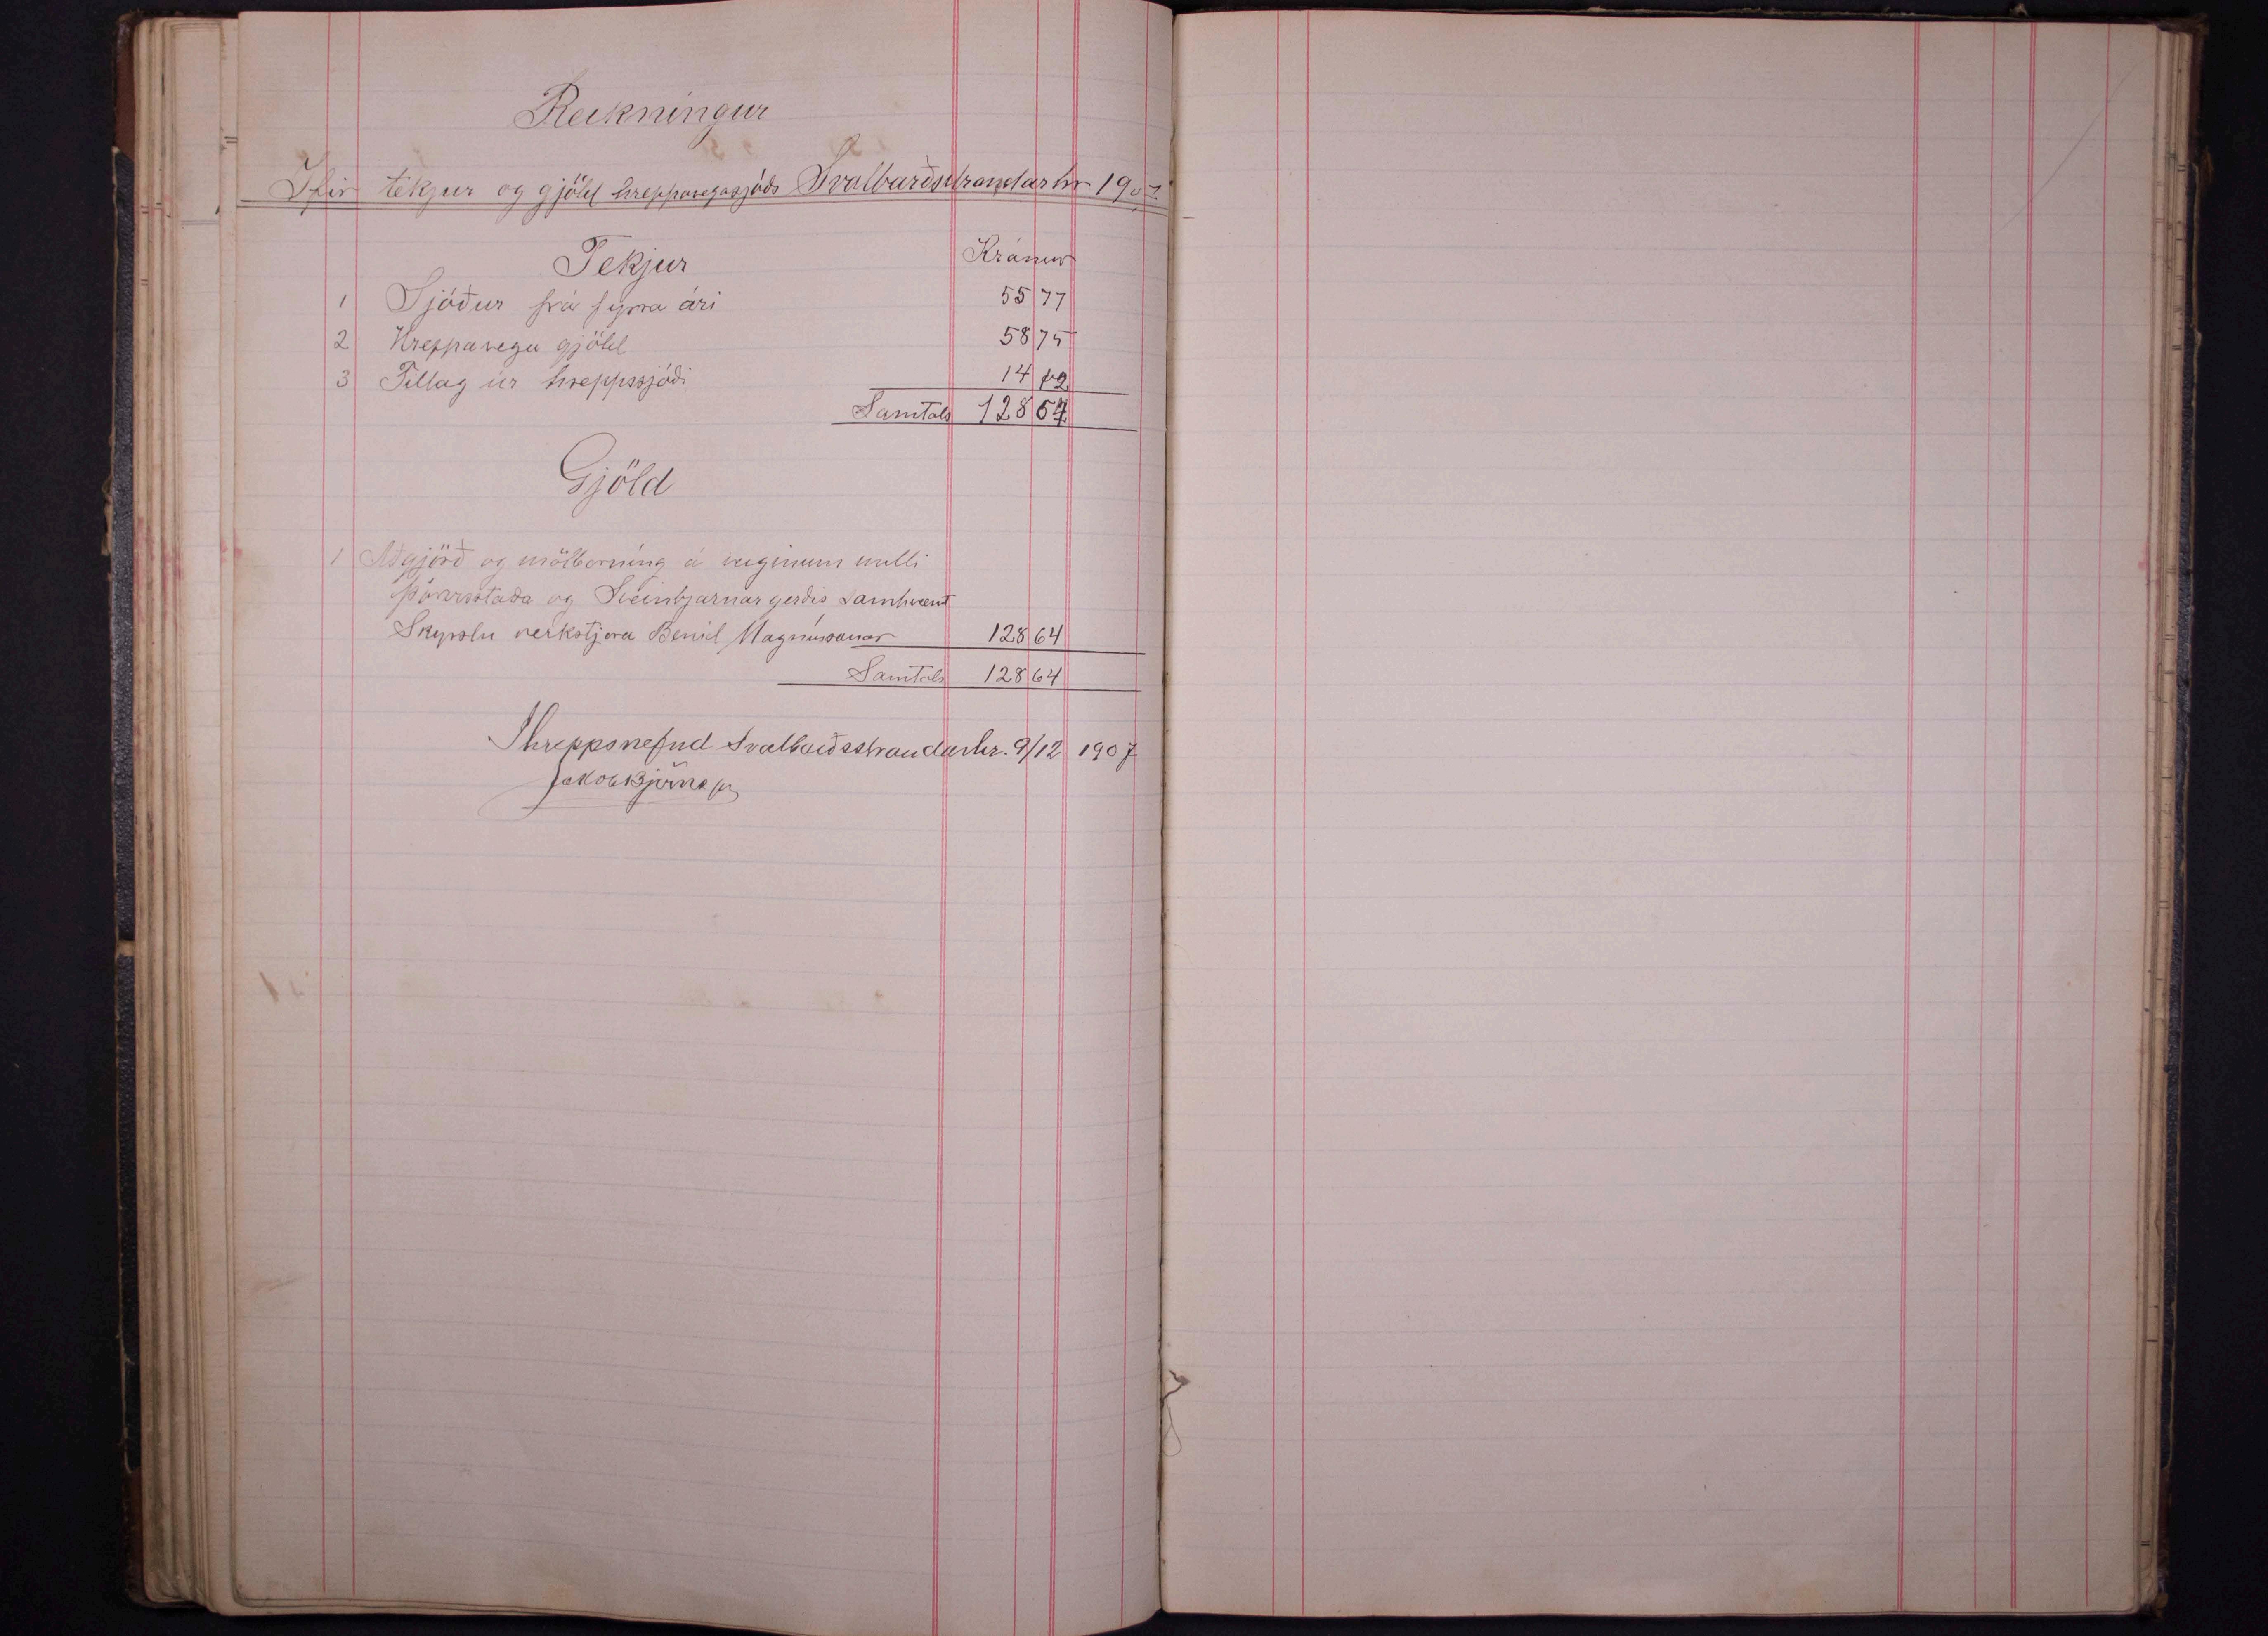 Reikningur
Ifir tekjur og gjöld hreppavegasjóðs Svalbarðstrandarhr 1907
Tekjur Krónur
1 Sjóður frá fyrra ári 55 77
2 Hreppavega gjöld 58 75
3 Tillag úr hreppssjóði 14 12
Samtals 128 64
Gjöld
1 Aðgjörð og mölborning á veginum milli
Þórisstaða og Sveinbjarnargerðis samkvæmt
Skyrslu verkstjora Benid Magnússonar 128 64
Samtals 128 64
Í hreppsnefnd Svalbarðsstrandarhr. 9/12 1907
Jakob Björnsson